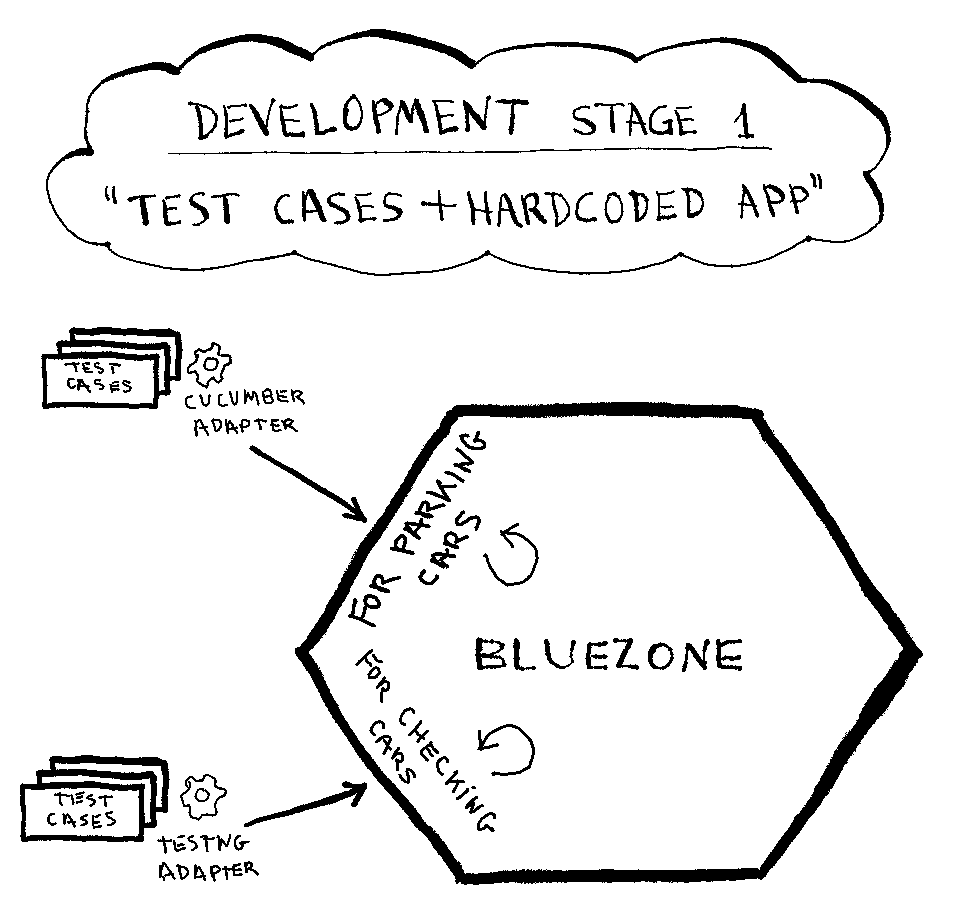 DEVELOPMENT STAGE 1
"TEST CASES + HARDCODED APP"
TEST
CASES
CUCUMBER
ADAPTER
FOR PARKING
CARS
BLUEZONE
FOR CHECKING
CARS
TEST
CASES
TESTNG
ADAPTER